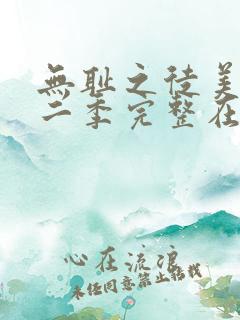 無耻之徒美
二季完整在
心在流浪
未经同意禁止转载